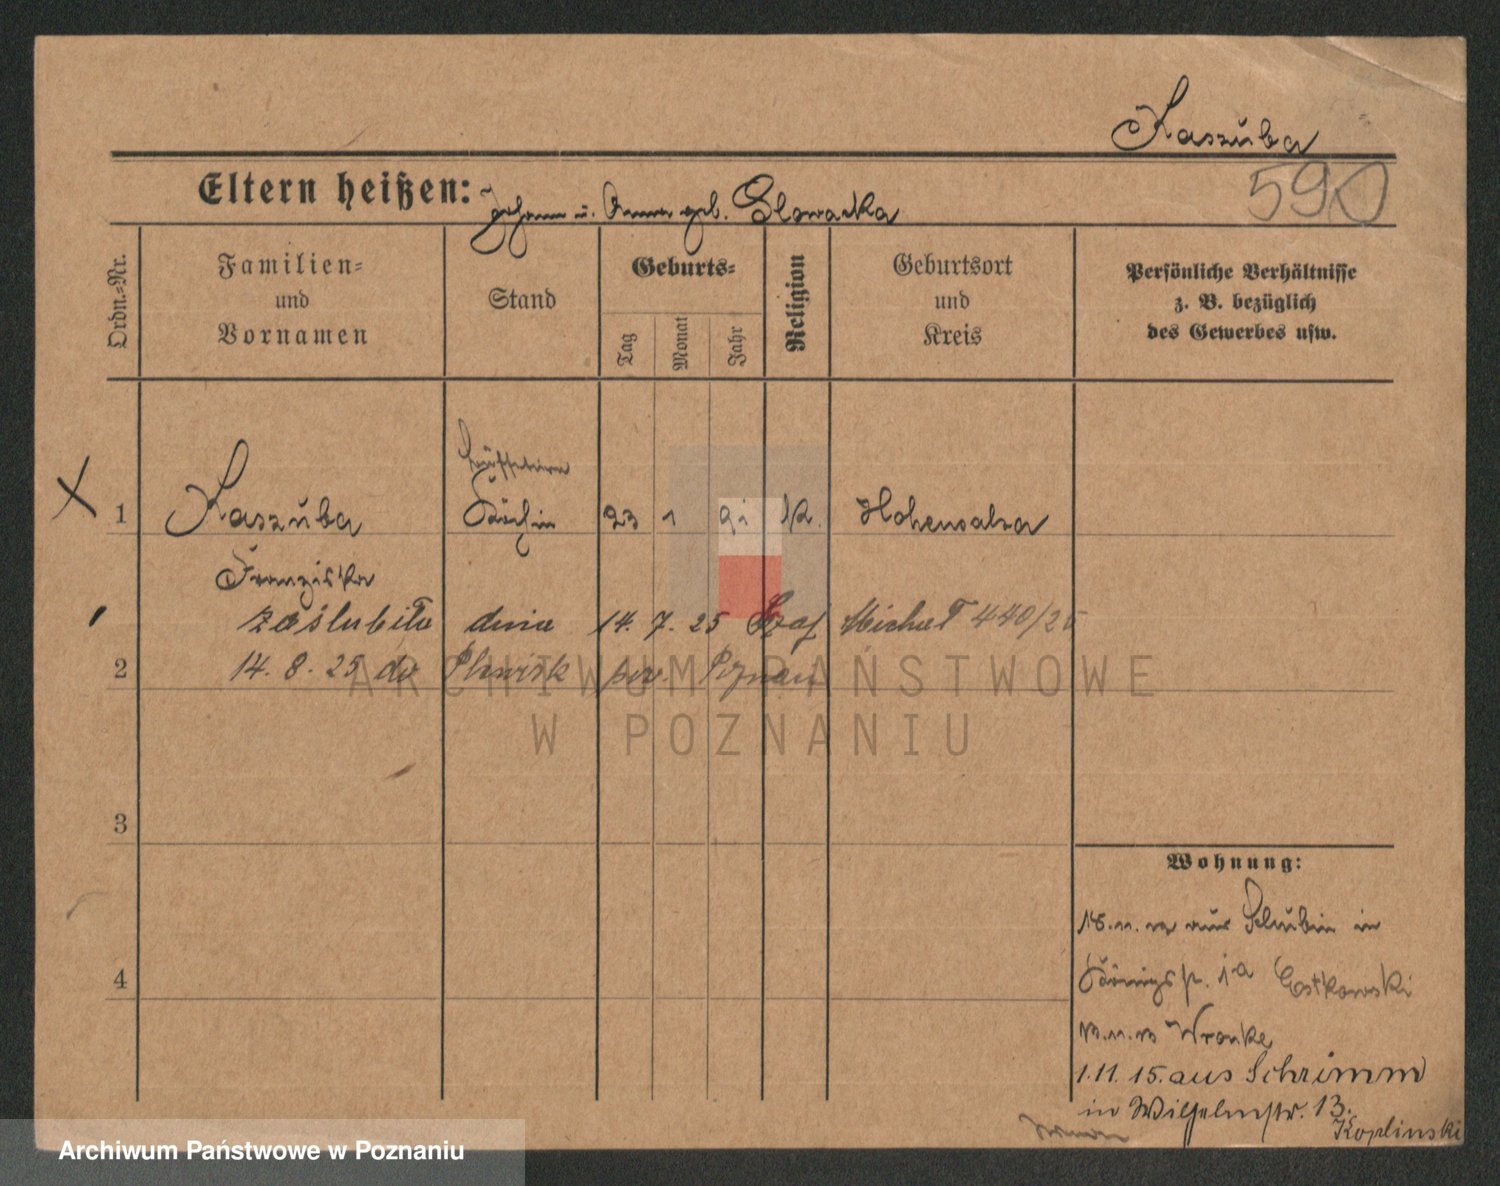 Kaszuba
Eltern heißen: Johann u. Anna geb. Glowacka
590
Ordn.-Nr.
Familien-
und
Vornamen
Stand
Geburts-
Tag
Monat
Jahr
Religion
Geburtsort
und
Kreis
Persönliche Verhältnisse
z. B. bezüglich
des Gewerbes usw.
1 Kaszuba Köchin 23 1 91 K. Hohensalza
Franziska
zaślubiła dnia 14. 7. 25 Michał 440/25
2 14. 8. 25 do Plewisk pow. Poznań
3
4
Wohnung:
aus Schubin in
Königspl. Estkowski
Wronke
1.11.15. aus Schrimm
in Wilhelmstr. 13.
Koplinski
ARCHIWUM PAŃSTWOWE
W POZNANIU
Archiwum Państwowe w Poznaniu